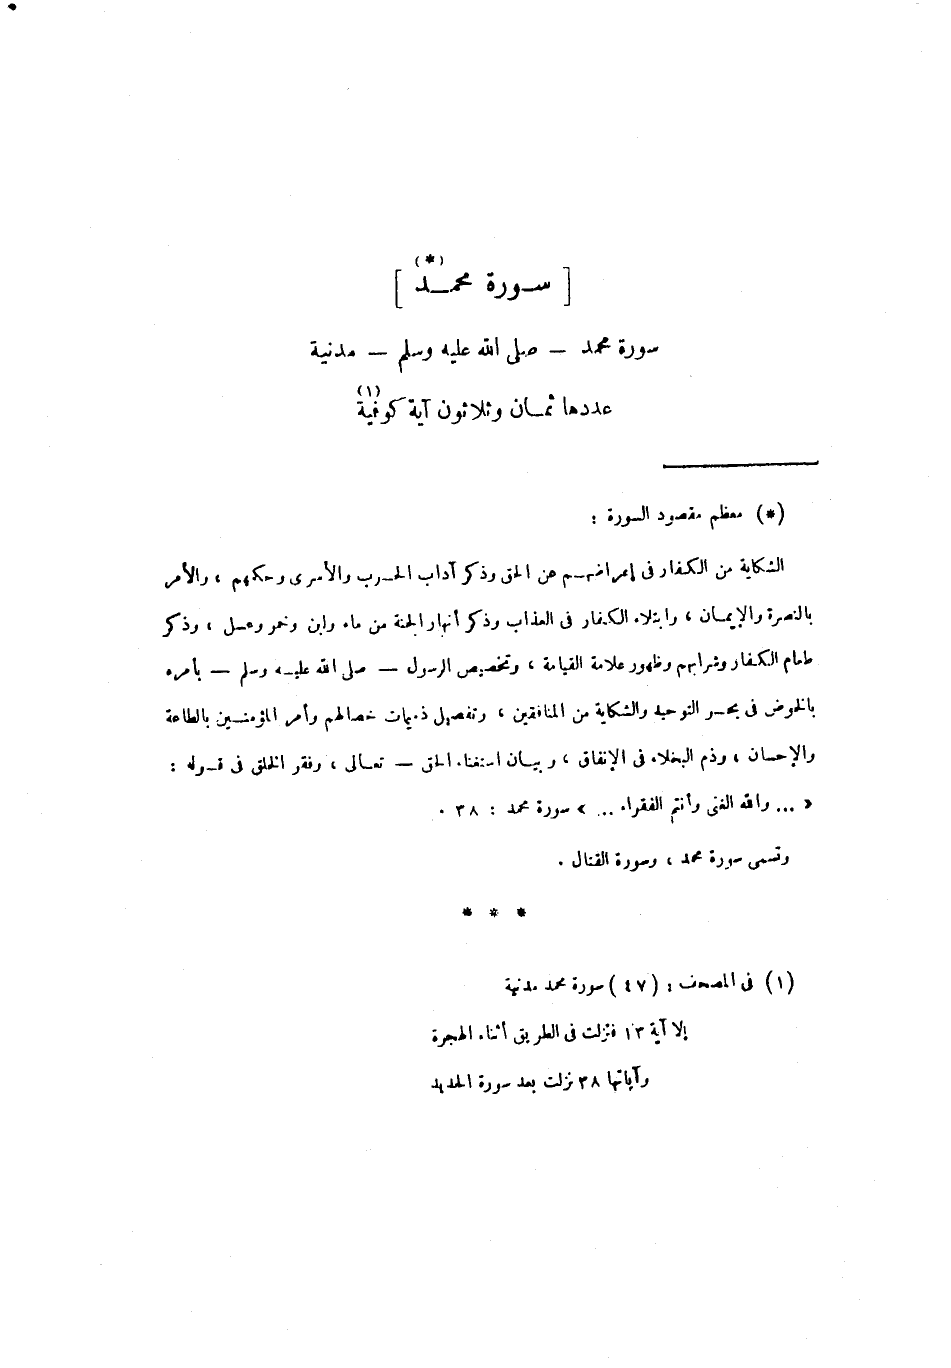 (*)
[ سورة محمد ]
سورة محمد — صلى الله عليه وسلم — مدنية
عددها ثمان وثلاثون آية كوفية (١)
(*) معظم مقصود السورة :
الشكاية من الكفار فى إعراضهم عن الحق وذكر آداب الحرب والأسرى وحكمهم ، والأمر
بالنصرة والإيمان ، وابتلاء الكفار فى العذاب وذكر أنهار الجنة من ماء ولبن وخمر وعسل ، وذكر
طعام الكفار وشرابهم وظهور علامة القيامة ، وتخصيص الرسول — صلى الله عليه وسلم — بأمره
بالخوض فى بحر التوحيد والشكاية من المنافقين ، وتفصيل ذميمات خصالهم وأمر المؤمنين بالطاعة
والإحسان ، وذم البخلاء فى الإنفاق ، وبيان استغناء الحق — تعالى ، وفقر الخلق فى قوله :
« ... والله الغنى وأنتم الفقراء ... » سورة محمد : ٣٨ .
وتسمى سورة محمد ، وسورة القتال .
* * *
(١) فى المصحف : (٤٧) سورة محمد مدنية
إلا آية ١٣ فنزلت فى الطريق أثناء الهجرة
وآياتها ٣٨ نزلت بعد سورة الحديد